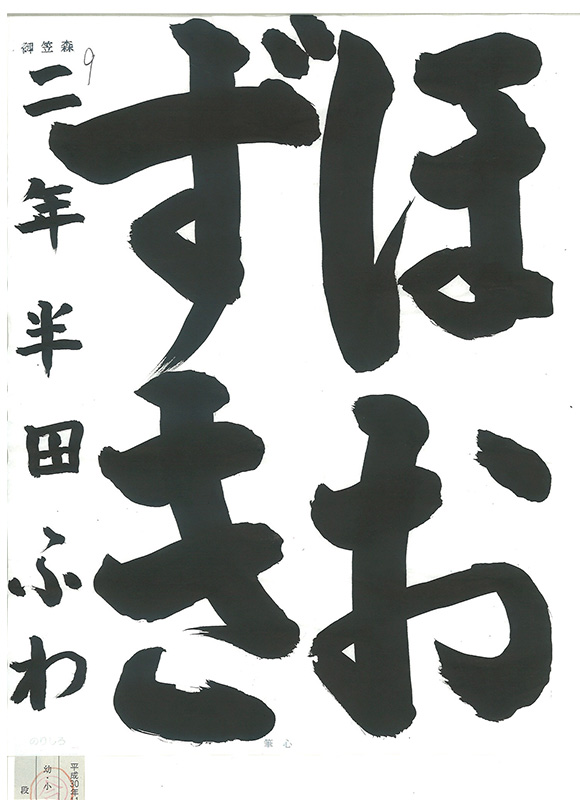 ほお
ずき
二年半田ふわ
御笠森
9
筆心
平成30年
幼・小
段